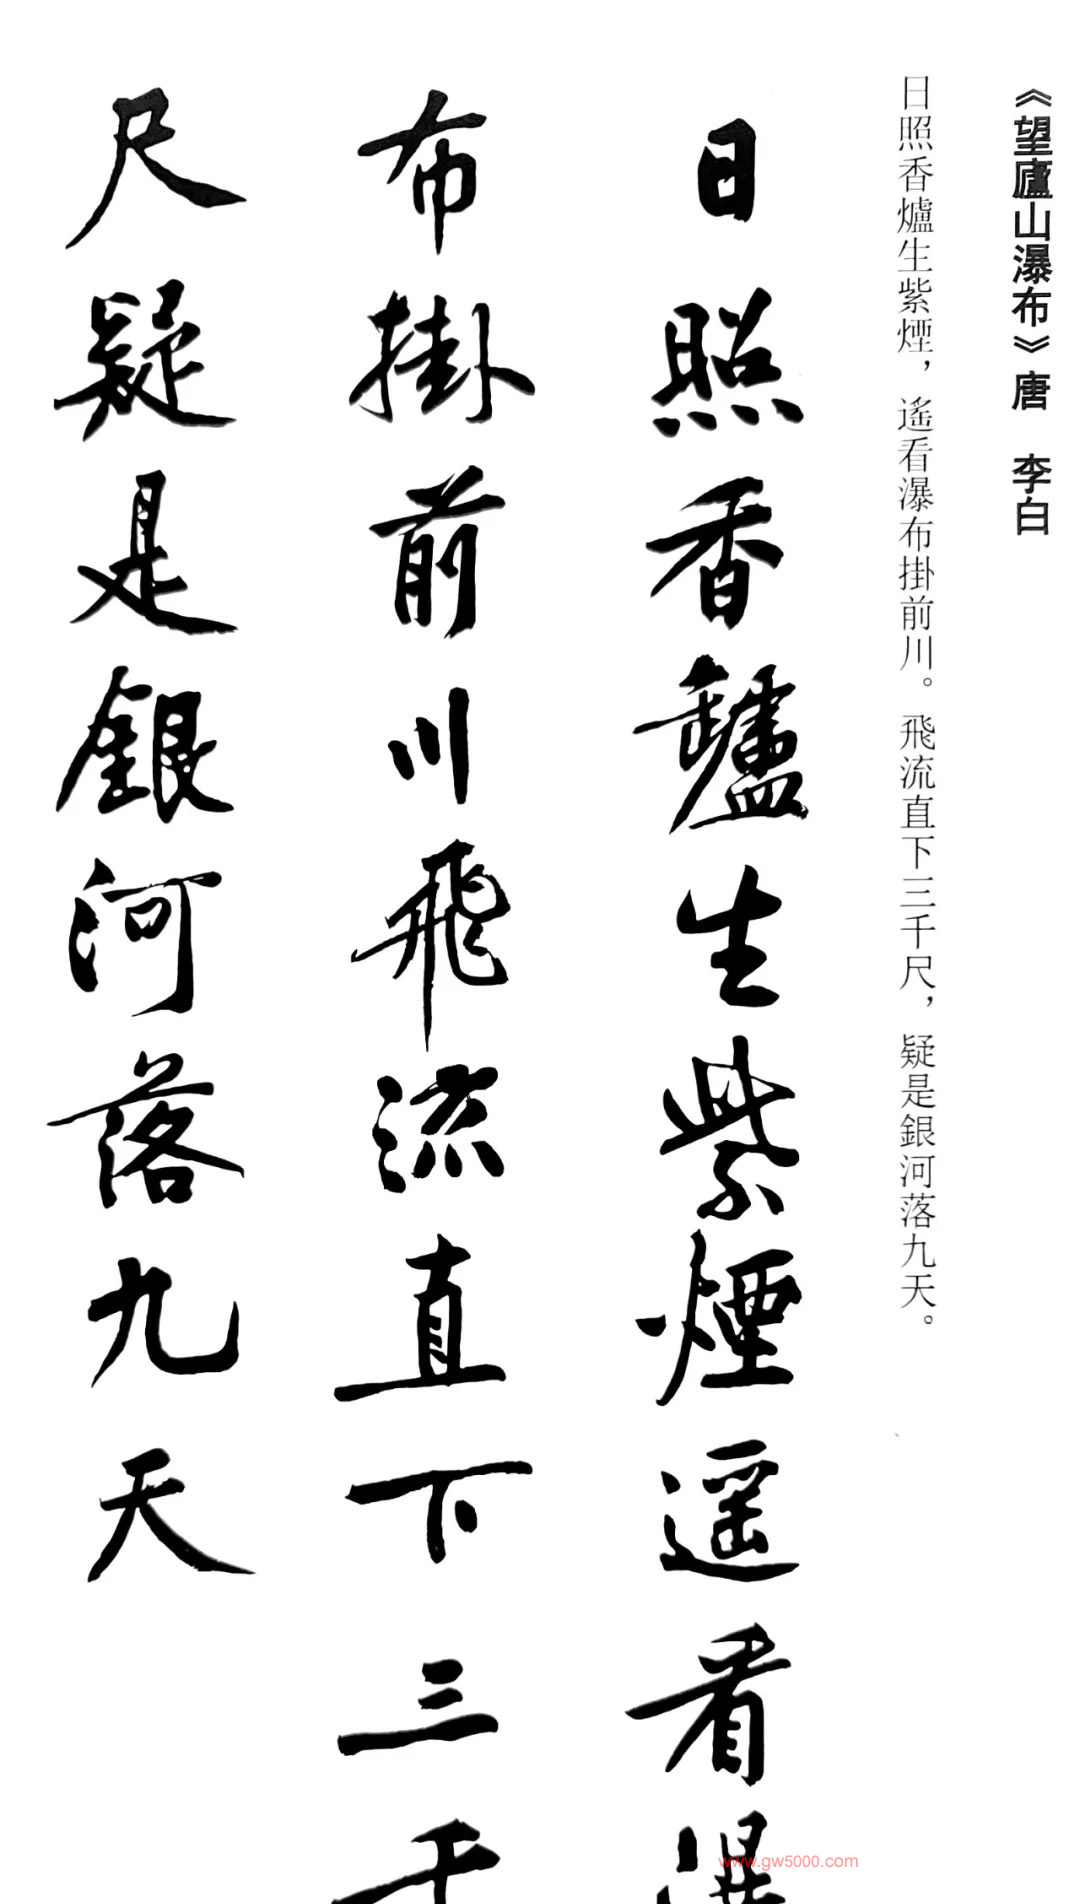 《望廬山瀑布》唐　李白
日照香爐生紫煙，遙看瀑布掛前川。飛流直下三千尺，疑是銀河落九天。
日照香爐生紫煙遙看瀑
布掛前川飛流直下三千
尺疑是銀河落九天
www.gw5000.com